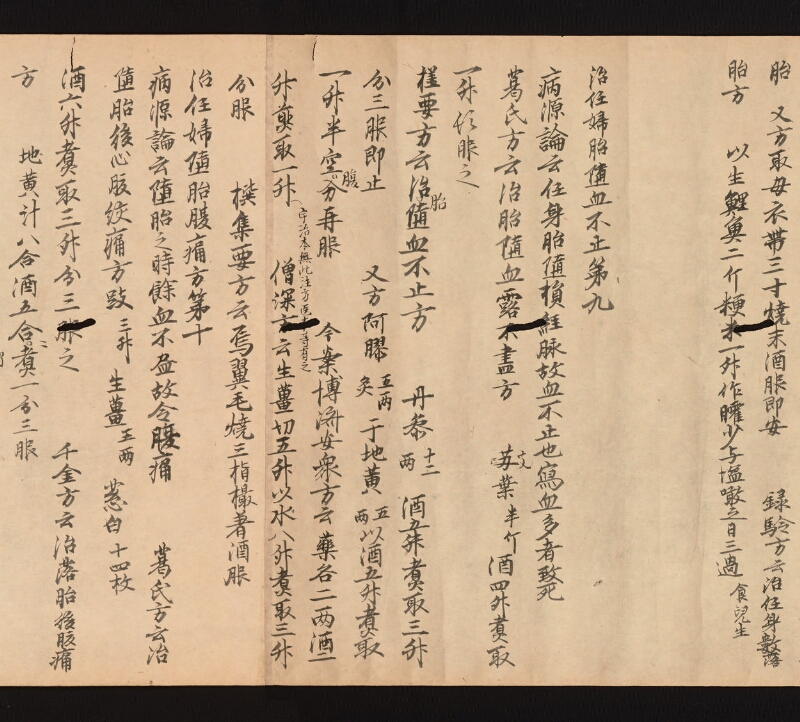 胎　又方取母衣帶三寸燒末酒服即安　録驗方云治任身數落
胎方　以生鯉魚二斤粳米一升作臛少与塩噉之日三過　食兒生
治任婦胎墮血不止第九
病源論云任身胎墮損經脉故血不止也寫血多者致死
葛氏方云治胎墮血露不盡方　苏葉半斤　酒四升煮取
一升頓服之
極要方云治胎墮血不止方　丹參十二两　酒五升煮取三升
分三服即止　又方阿膠五两炙　干地黄五两　以酒五升煮取
一升半空腹分再服　今案博濟安衆方云藥各二两酒二
升煎取一升　宇治本無此注方　僧深方云生薑切五升以水八升煮取三升
分服　撲集要方云焉翼毛燒三指撮著酒服
治任婦墮胎腹痛方第十
病源論云墮胎之時餘血不盡故令腹痛　葛氏方云治
墮胎後心腹絞痛方豉三升　生薑五两　葱白十四枚
酒六升煮取三升分三服之　千金方云治落胎後腹痛
方　地黄汁八合酒五合煮一分三服